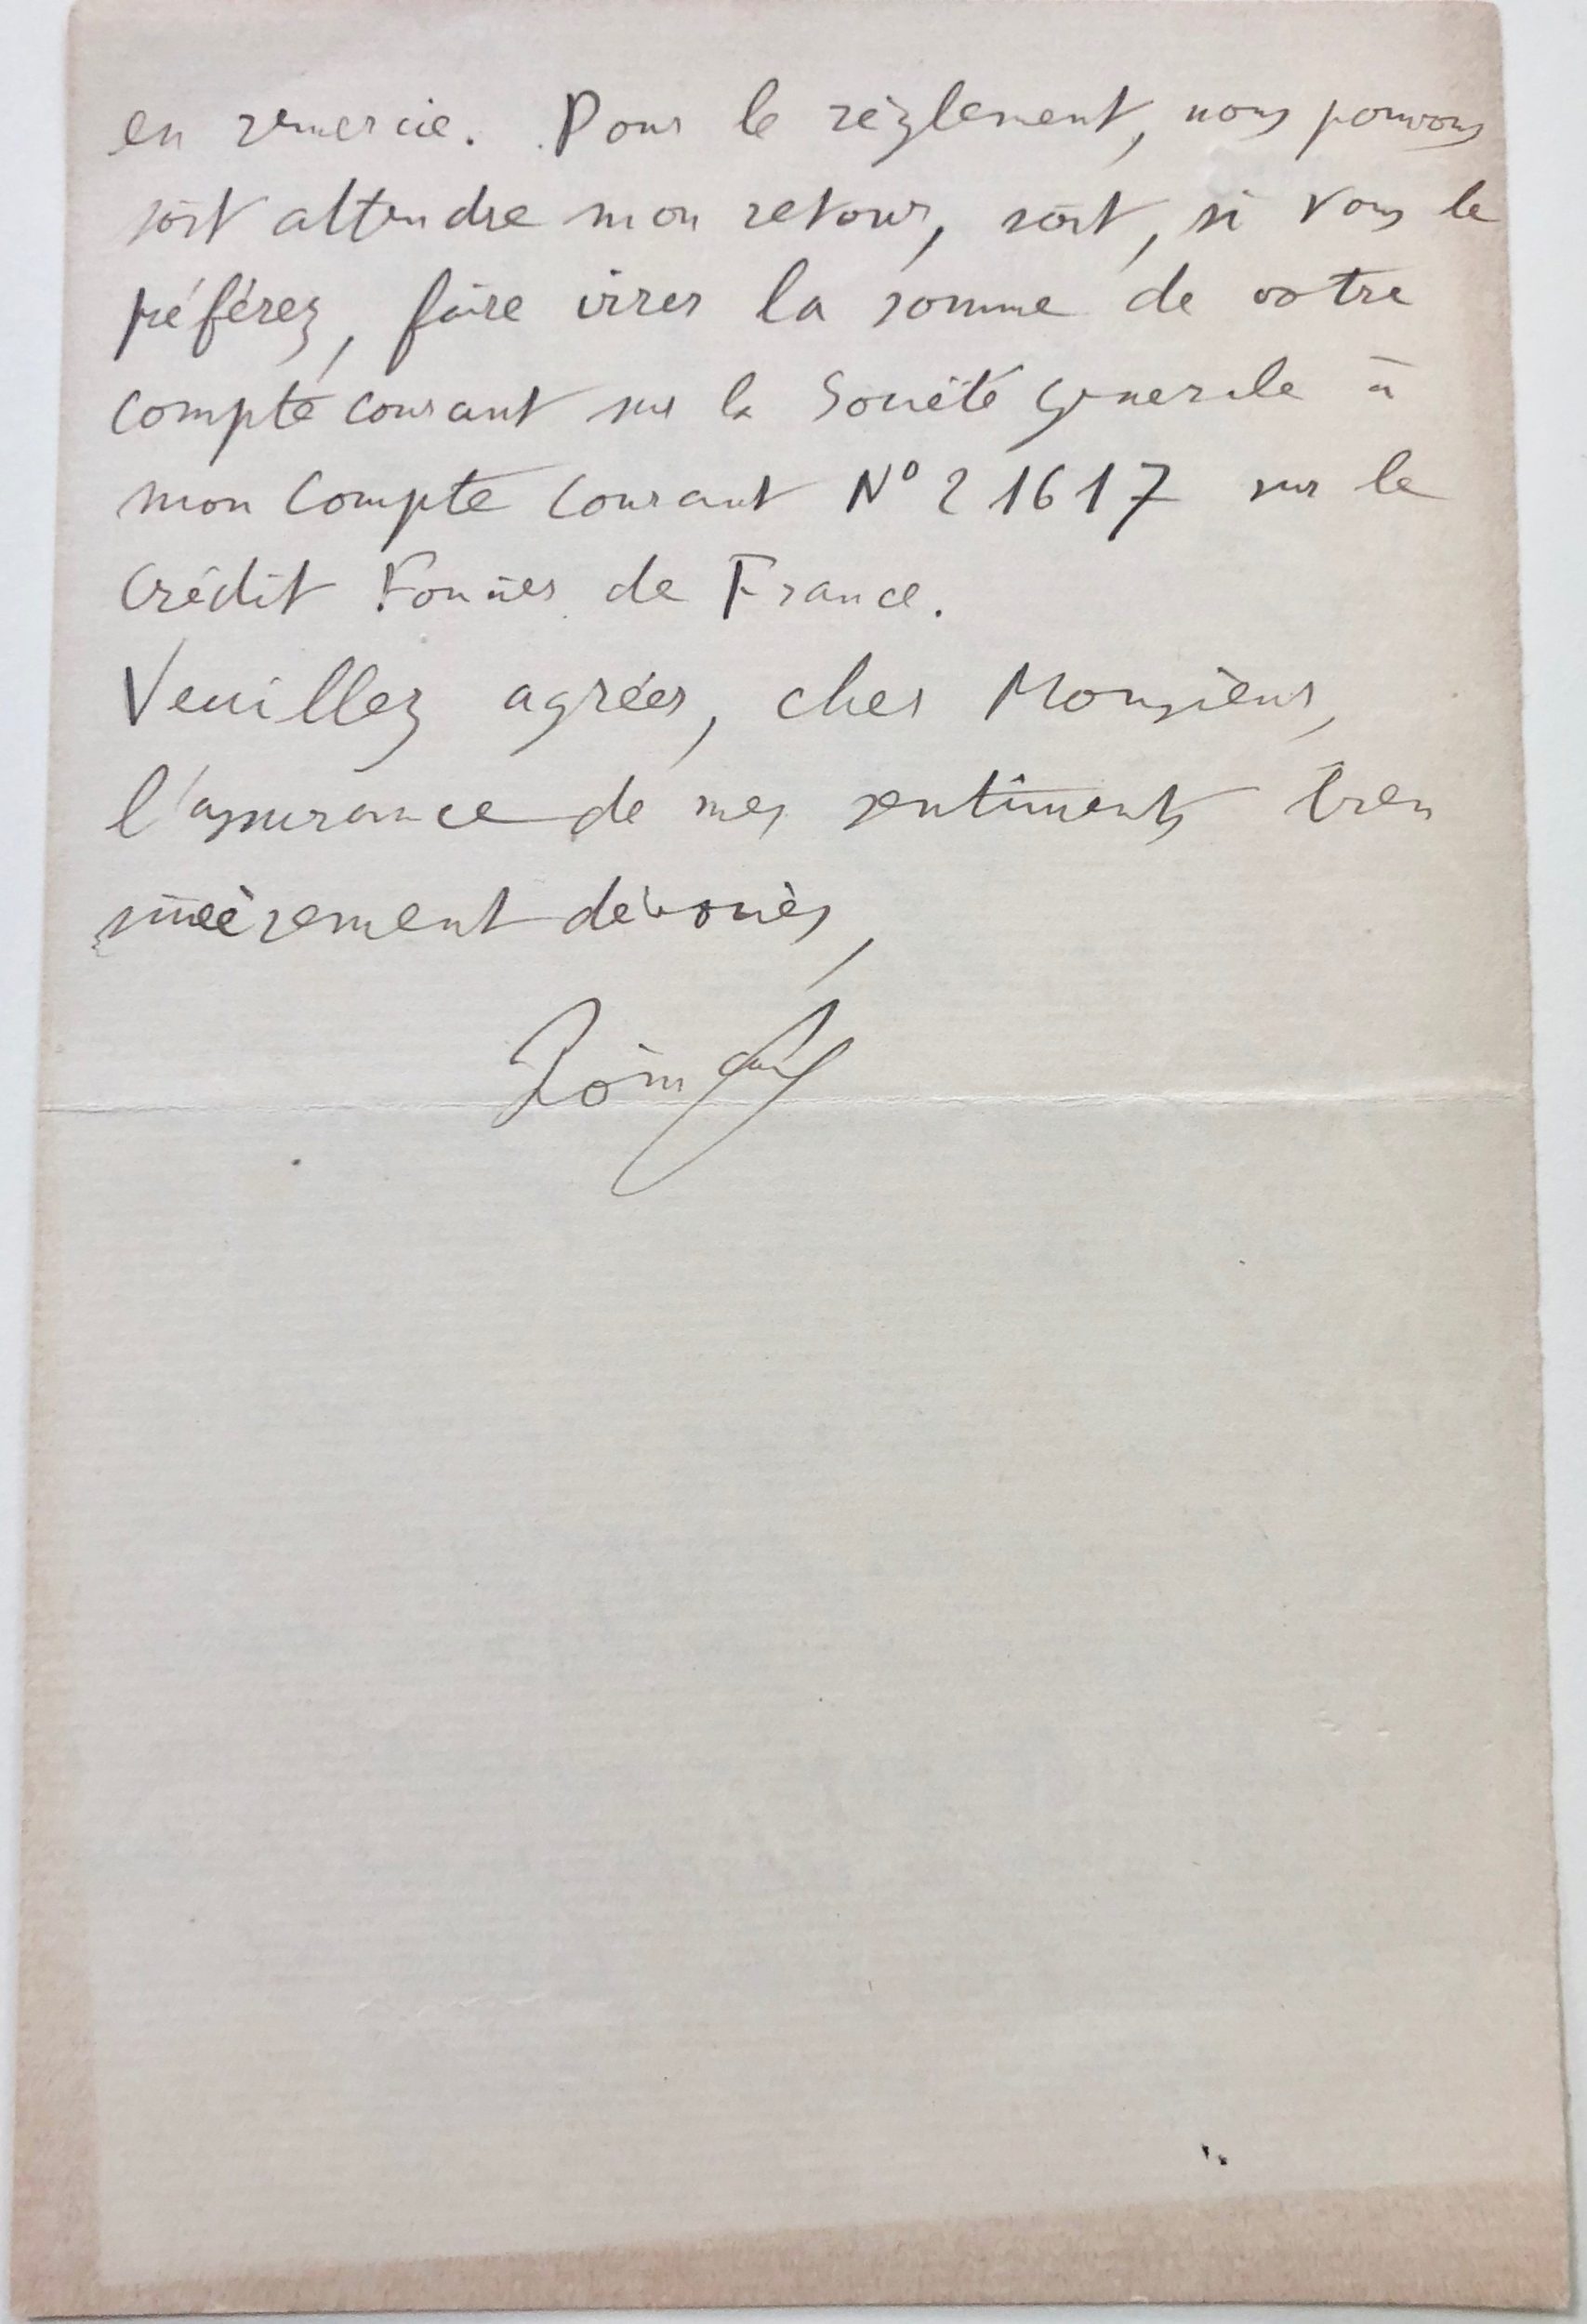 en remercie. Pour le règlement, nous pouvons
soit attendre mon retour, soit, si vous le
préférez, faire virer la somme de votre
compte courant sur la Société Générale à
mon compte courant N° 21617 sur le
Crédit Foncier de France.
Veuillez agréer, cher Monsieur,
l'assurance de mes sentiments bien
sincèrement dévoués,